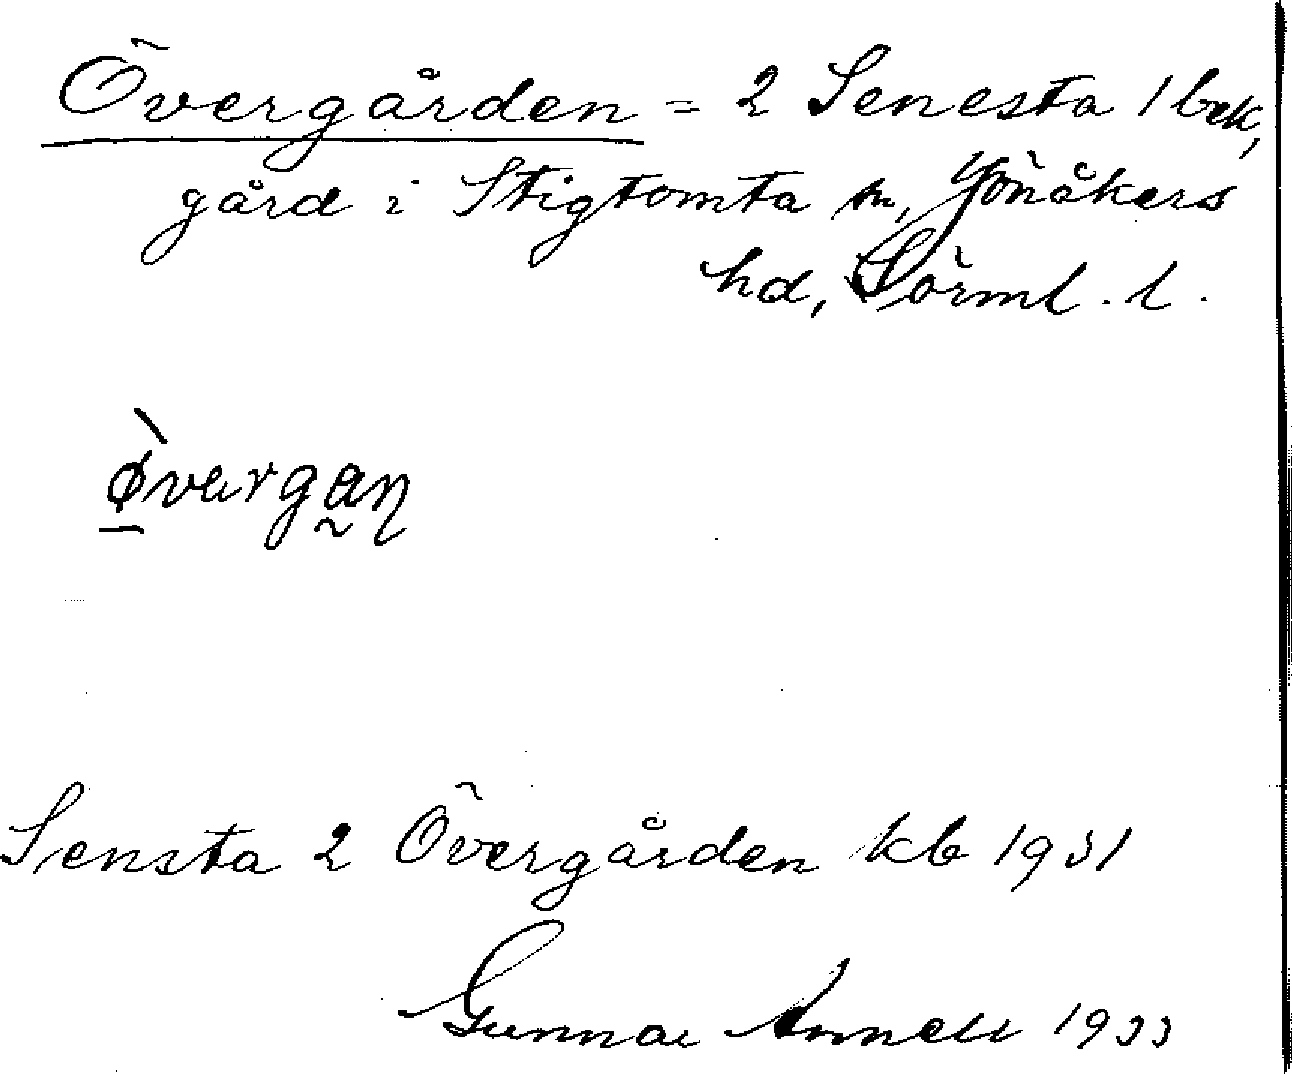 Övergården = 2 Senesta 1 bek,
gård i Stigtomta sn, Jönåkers
hd, Sörml. l.
øvərgan
Sensta 2 Övergården kb 1931
Gunnar Annell 1933